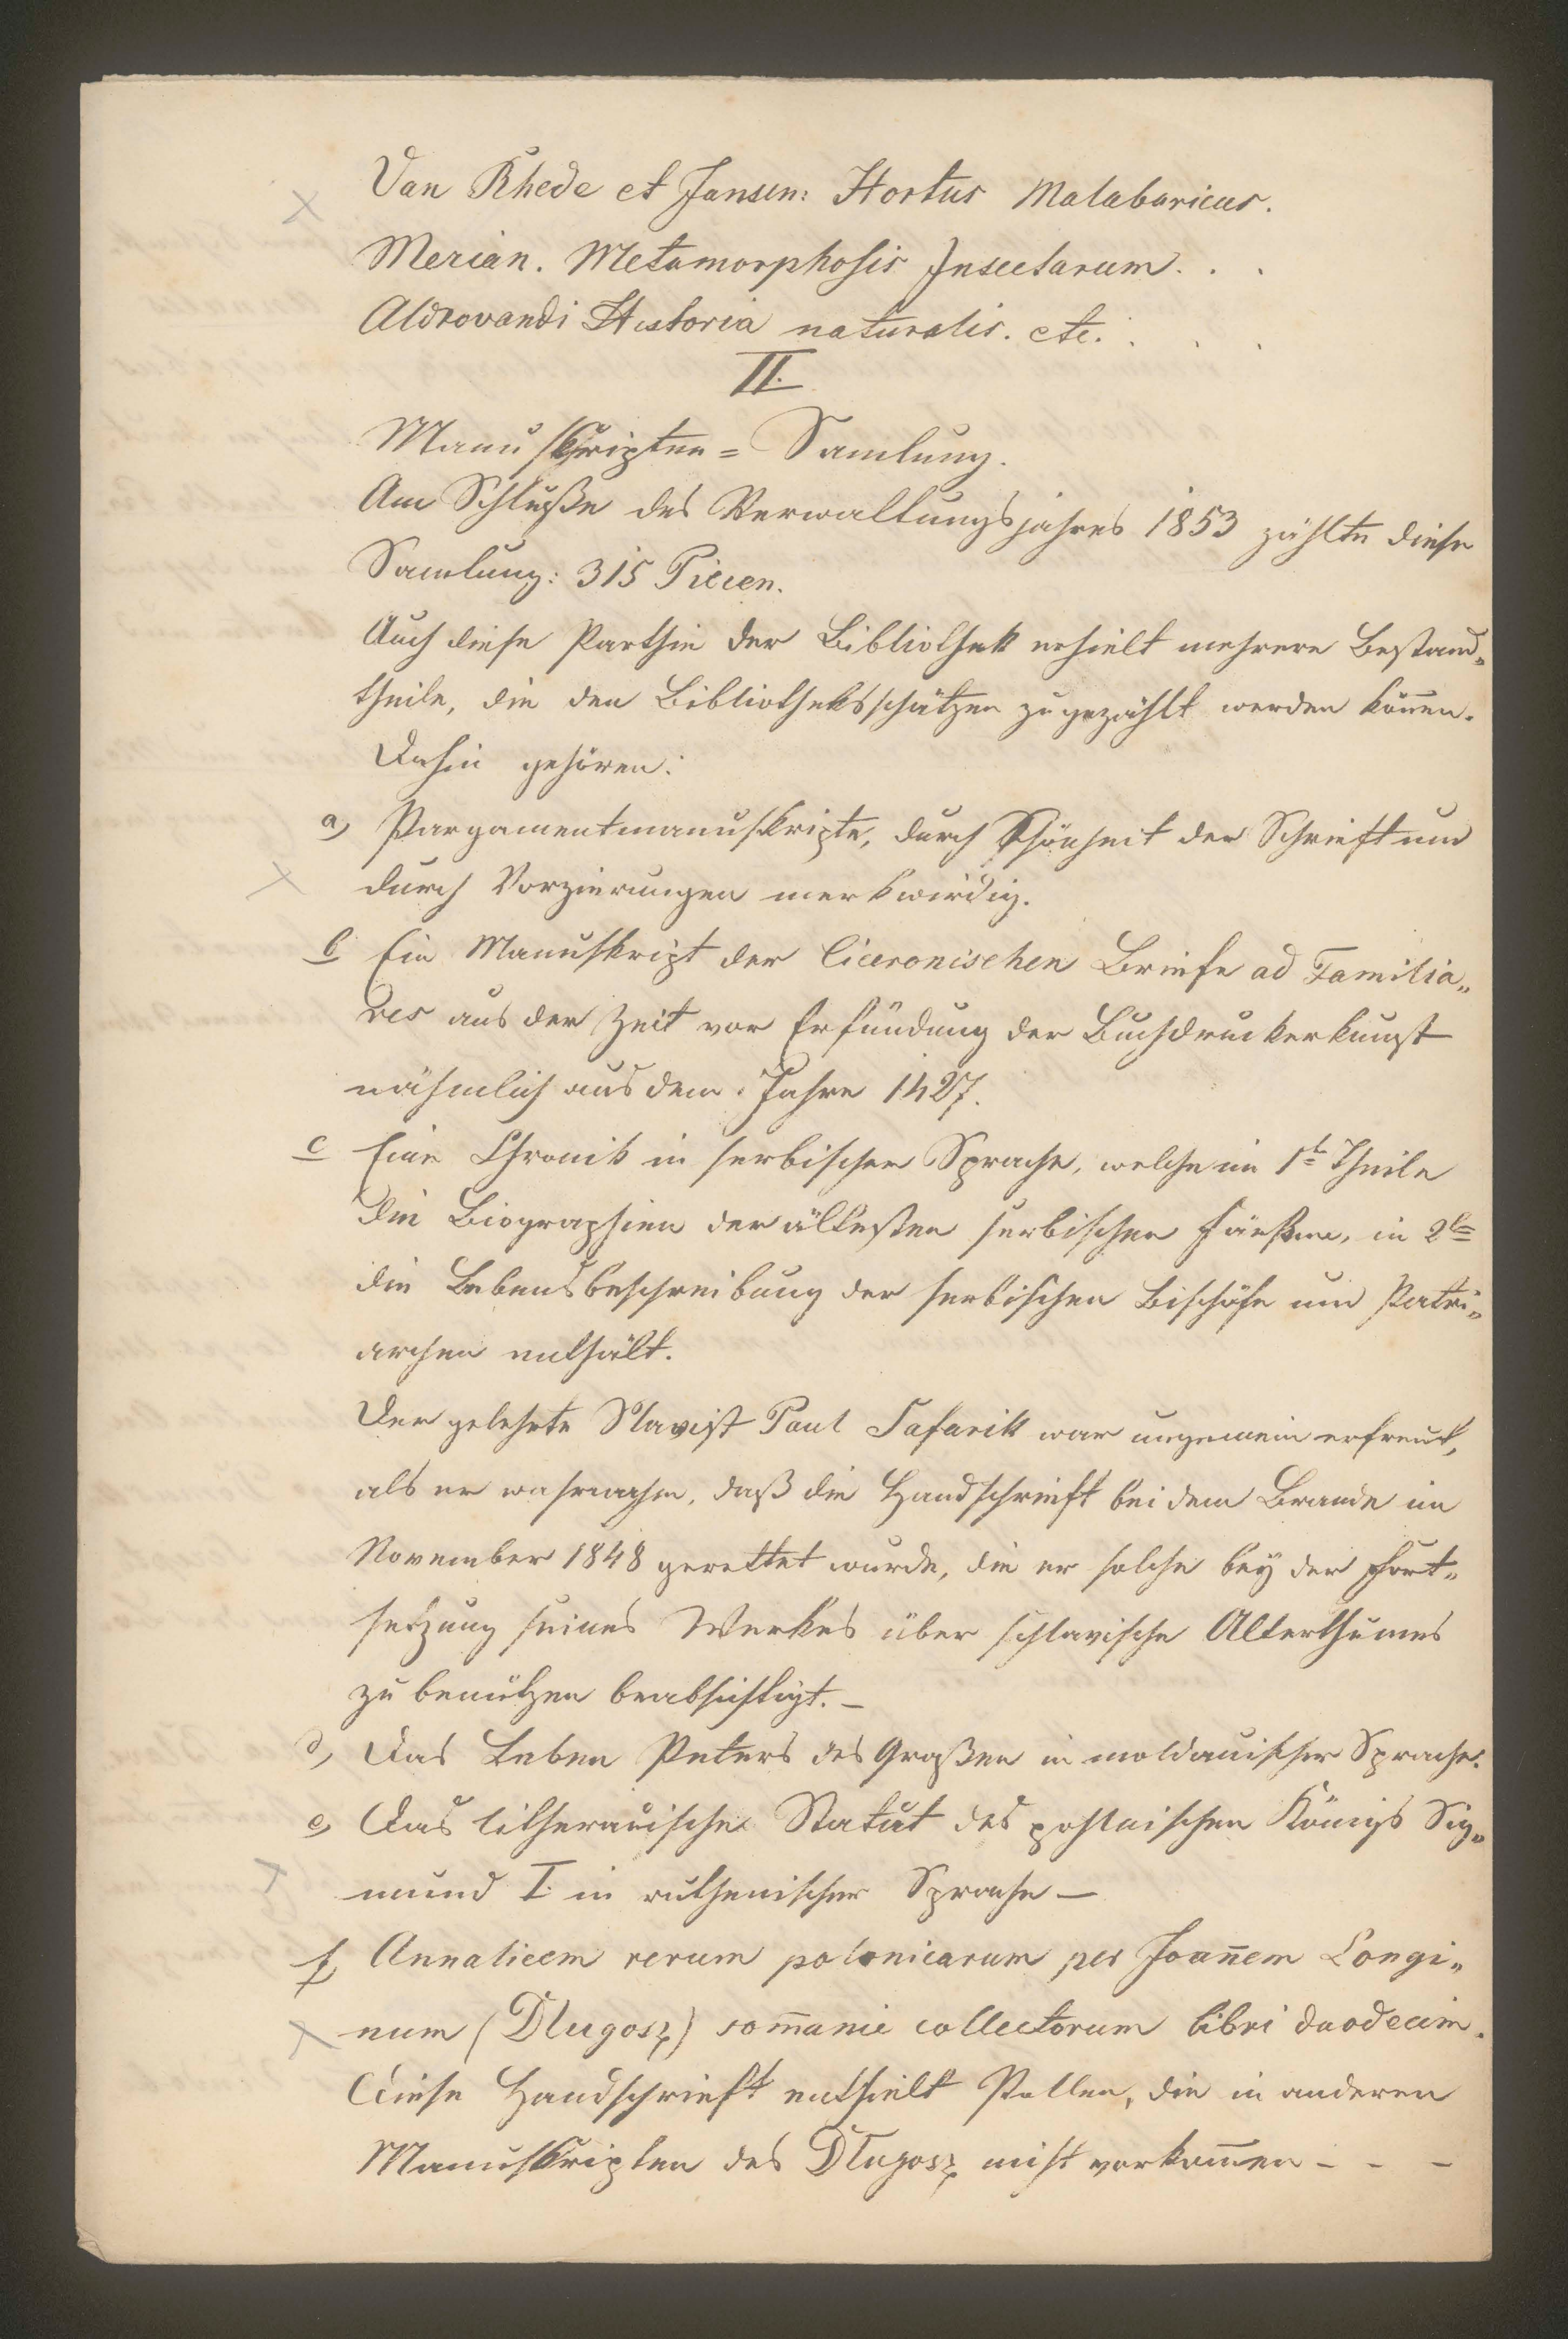 Van Rhede et Jansen: Hortus Malabaricus.
Merian. Metamorphosis Insectarum. . .
Aldrovandi Historia naturalis. etc. . . .
II.
Manuskripten= Samlung.
Am Schluße des Verwaltungsjahres 1853 zählte diese
Samlung: 315 Piecen.
Auch diese Parthie der Bibliothek erhielt mehrere Bestand„
theile, die den Bibliotheksschätzen zugezählt werden kön̄en.
Dahin gehören:
a, Pergamentmanuskripte, durch Schönheit der Schrieft und
durch Verzierungen merkwirdig.
b Ein Manuskript der Ciceronischen Briefe ad Familia„
res aus der Zeit vor Erfündung der Buchdruckerkunst
nähmlich aus dem Jahre 1427.
c Eine Chronik in serbischer Sprache, welche im 1t Theile
die Biographien der ältesten serbischen Fürsten, in 2t
die Lebensbeschreibung der serbischen Bischöfe und Patri„
archen enthält.
Der gelehrte Slavist Paul Safarik war ungemein erfreut,
als er wahrnahm, daß die Handschrieft bei dem Brande im
November 1848 gerettet wurde, die er solche bey der Fort„
setzung seines Werkes über schlavische Alterthümes
zu benützen beabsichtigt. –
d, Das Leben Peters des Großen in moldauischer Sprache.
e, Das litherauische Statut des pohlnischen Königs Sig„
mund I. in ruthenischer Sprache –
f, Annalicem rerum polonicarum per Joan̄em Longi„
num (Dlugosz) som̄anie collectorum libri duodecim.
Diese Handschrieft enthielt Stellen, die in anderen
Manuskripten des Dlugosz nicht vorkom̄en – – –